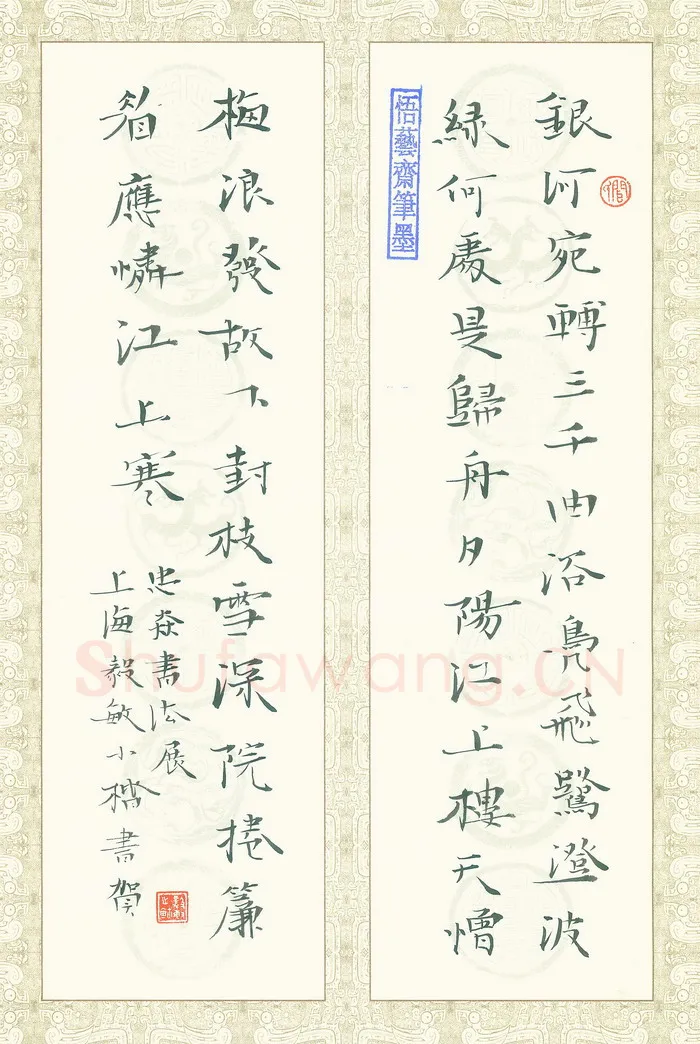 銀河宛轉三千曲浴鳧飛鷺澄波
綠何處是歸舟夕陽江上樓天憎
悟藝齋筆墨
梅浪發故下封枝雪深院捲簾
看應憐江上寒
忠焱書法展
上海毅敏小楷書賀
Shufawang.CN